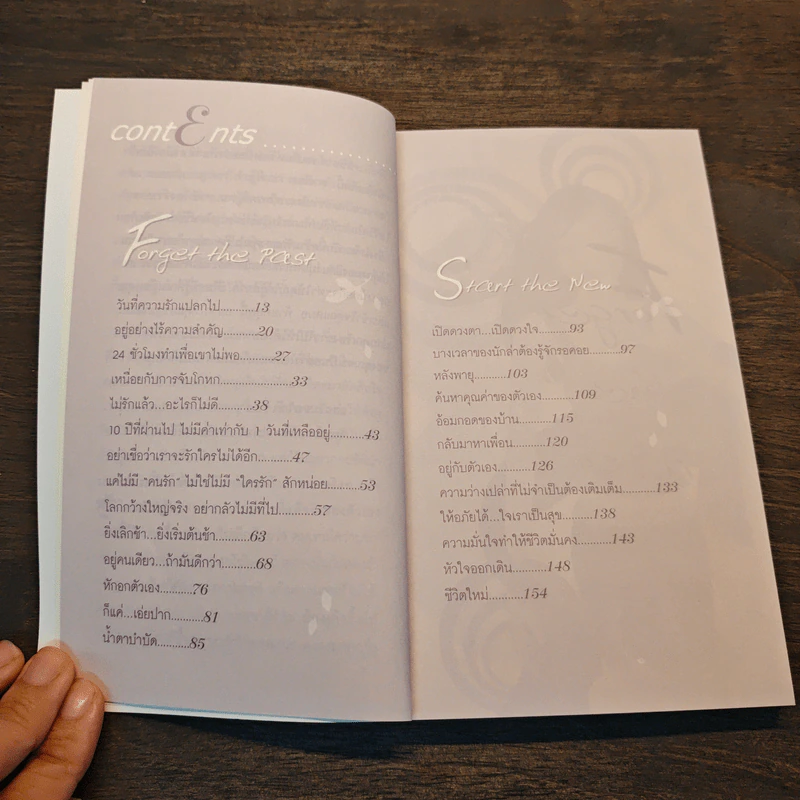 contEnts ..................
Forget the Past
วันที่ความรักแปลกไป..........13
อยู่อย่างไร้ความสำคัญ..........20
24 ชั่วโมงทำเพื่อเขาไม่พอ..........27
เหนื่อยกับการจับโกหก....................33
ไม่รักแล้ว...อะไรก็ไม่ดี..........38
10 ปีที่ผ่านไป ไม่มีค่าเท่ากับ 1 วันที่เหลืออยู่..........43
อย่าเชื่อว่าเราจะรักใครไม่ได้อีก..........47
แค่ไม่มี "คนรัก" ไม่ใช่ไม่มี "ใครรัก" สักหน่อย..........53
โลกกว้างใหญ่จริง อย่ากลัวไม่มีที่ไป..........57
ยิ่งเลิกช้า...ยิ่งเริ่มต้นช้า..........63
อยู่คนเดียว...ถ้ามันดีกว่า..........68
หักอกตัวเอง..........76
ก็แค่...เอ่ยปาก..........81
น้ำตาบำบัด..........85
Start the New
เปิดดวงตา...เปิดดวงใจ..........93
บางเวลาของนักล่าต้องรู้จักรอคอย..........97
หลังพายุ..........103
ค้นหาคุณค่าของตัวเอง..........109
อ้อมกอดของบ้าน..........115
กลับมาหาเพื่อน..........120
อยู่กับตัวเอง..........126
ความว่างเปล่าที่ไม่จำเป็นต้องเติมเต็ม..........133
ให้อภัยได้...ใจเราเป็นสุข..........138
ความมั่นใจทำให้ชีวิตมั่นคง..........143
หัวใจออกเดิน..........148
ชีวิตใหม่..........154